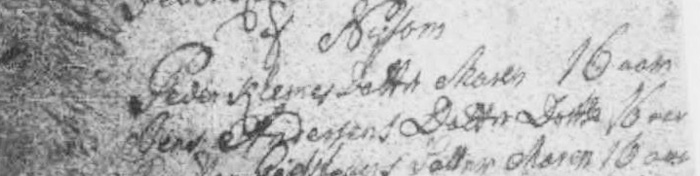 af Nysom
Peder Klemes Datter Maren 16 aar
Jens Andersens Datter Dorthe 16 aar
Datter Maren 16 aar